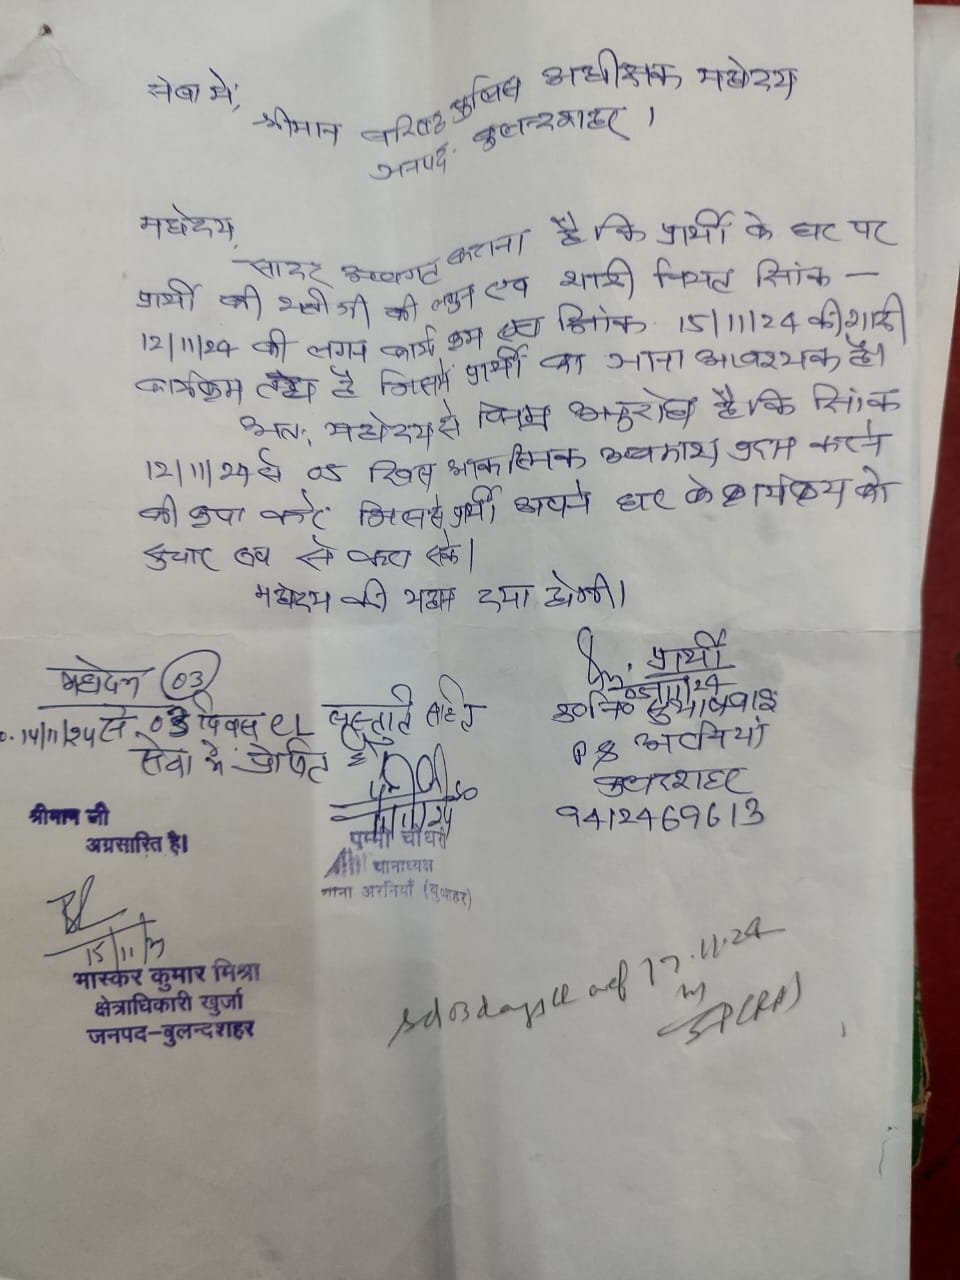 सेवा में,
श्रीमान वरिष्ठ पुलिस अधीक्षक महोदय
जनपद बुलन्दशहर ।
महोदय,
सादर अवगत कराना है कि प्रार्थी के घर पर
प्रार्थी की भतीजी की लगन एवं शादी नियत दिनांक –
12/11/24 की लगन कार्यक्रम एवं दिनांक 15/11/24 की शादी
कार्यक्रम है जिसमें प्रार्थी का जाना आवश्यक है।
अतः महोदय से विनम्र अनुरोध है कि दिनांक
12/11/24 से 05 दिवस आकस्मिक अवकाश प्रदान करने
की कृपा करें जिससे प्रार्थी अपने घर के कार्य को
सुचारू रूप से करा सके।
महोदय की महान दया होगी।
प्रार्थी
महोदय 03
05/11/24
14/11/24 से 03 दिवस CL संस्तुति सहित
उ0नि0
सेवा में प्रेषित है
P S अरनियां
बुलन्दशहर
14/11/24
9412469613
श्रीमान जी
अग्रसारित है।
पम्मी चौधरी
थानाध्यक्ष
थाना अरनियाँ (बु0शहर)
15/11/24
भास्कर कुमार मिश्रा
क्षेत्राधिकारी खुर्जा
जनपद-बुलन्दशहर
Sd 03 days CL wef 17.11.24
SP(RA)